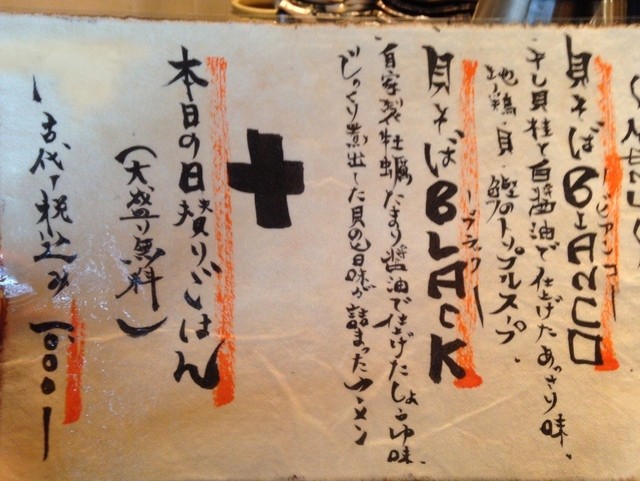 貝そばBIANCO
ービアンコー
干し貝柱と白醤油で仕上げたあっさり味。
地鶏・貝・鰹のトリプルスープ
貝そばBLACK
ーブラックー
自家製牡蠣たまり醤油で仕上げたしょうゆ味。
じっくり煮出した貝の旨味が詰まったラーメン
+
本日の日替りごはん
(大盛り無料)
税込み 1000ー